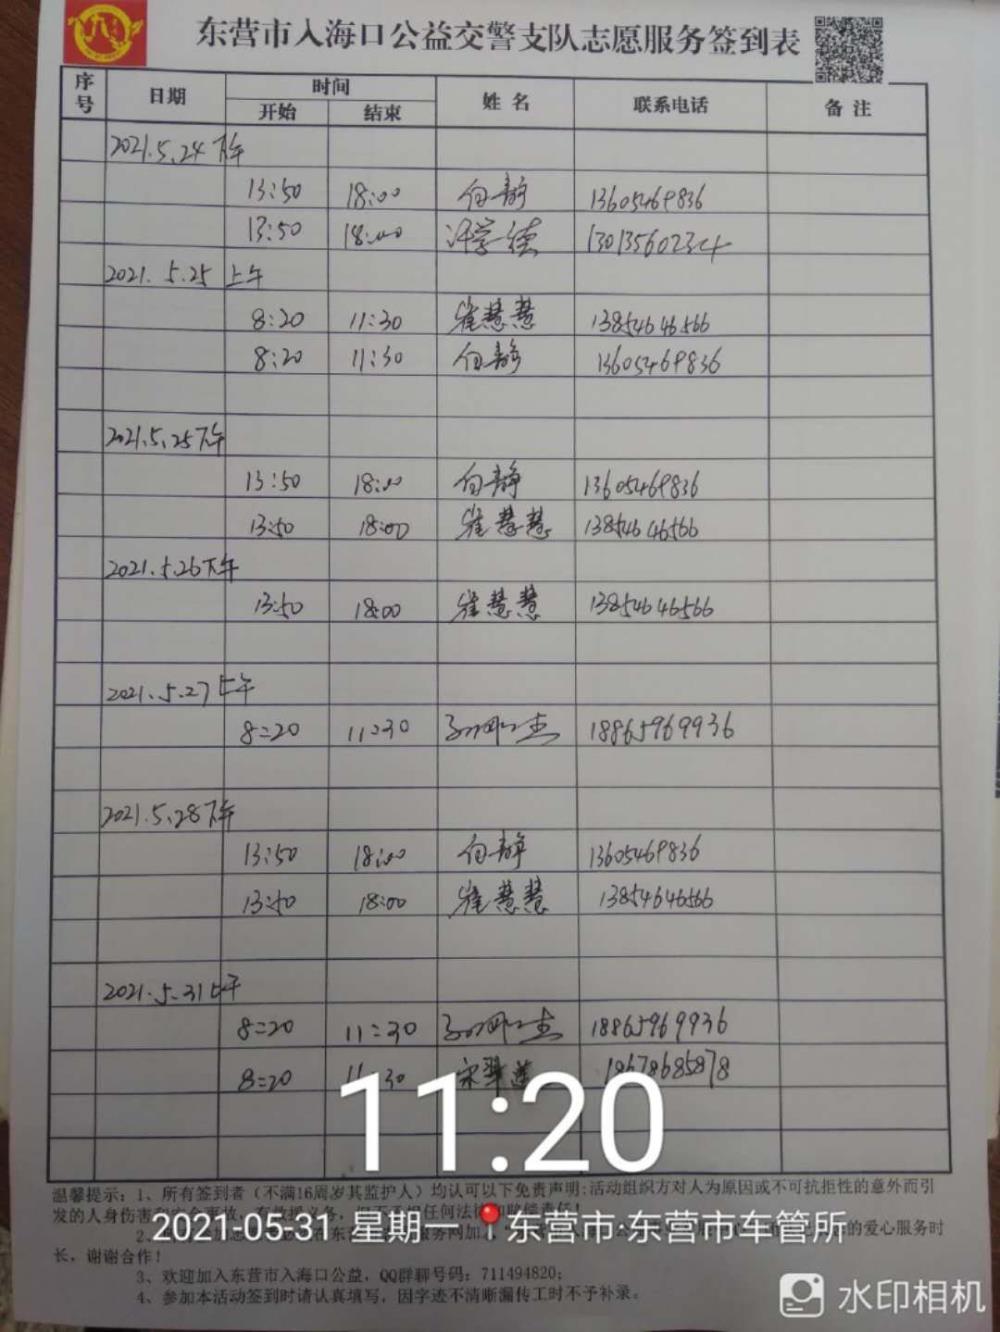 东营市入海口公益交警支队志愿服务签到表
序号 日期 时间 姓名 联系电话 备注
开始 结束
2021.5.24 下午
13:50 18:00 白静 13605469836
13:50 18:00 学德 13013560234
2021.5.25 上午
8:20 11:30 崔慧慧 13854646566
8:20 11:30 白静 13605469836
2021.5.25下午
13:50 18:00 白静 13605469836
13:50 18:00 崔慧慧 13854646566
2021.5.26下午
13:50 18:00 崔慧慧 13854646566
2021.5.27上午
8:20 11:30 18865969936
2021.5.28下午
13:50 18:00 白静 13605469836
13:50 18:00 崔慧慧 13854646566
2021.5.31上午
8:20 11:30 18865969936
8:20 11:30 宋翠莲 18678685878
11:20
温馨提示：1、所有签到者（不满16周岁其监护人）均认可以下免责声明:活动组织方对人为原因或不可抗拒性的意外而引
发的人身伤害
2021-05-31 星期一 东营市·东营市车管所
的爱心服务时
长，谢谢合作！
3、欢迎加入东营市入海口公益，QQ群聊号码：711494820；
4、参加本活动签到时请认真填写，因字迹不清晰漏传工时不予补录。
水印相机